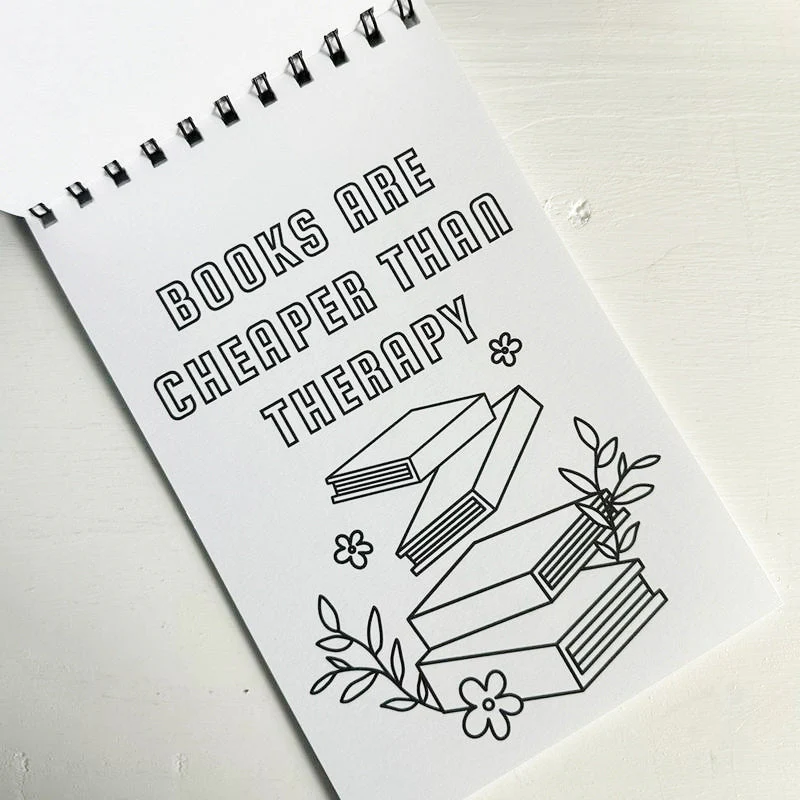 BOOKS ARE
CHEAPER THAN
THERAPY